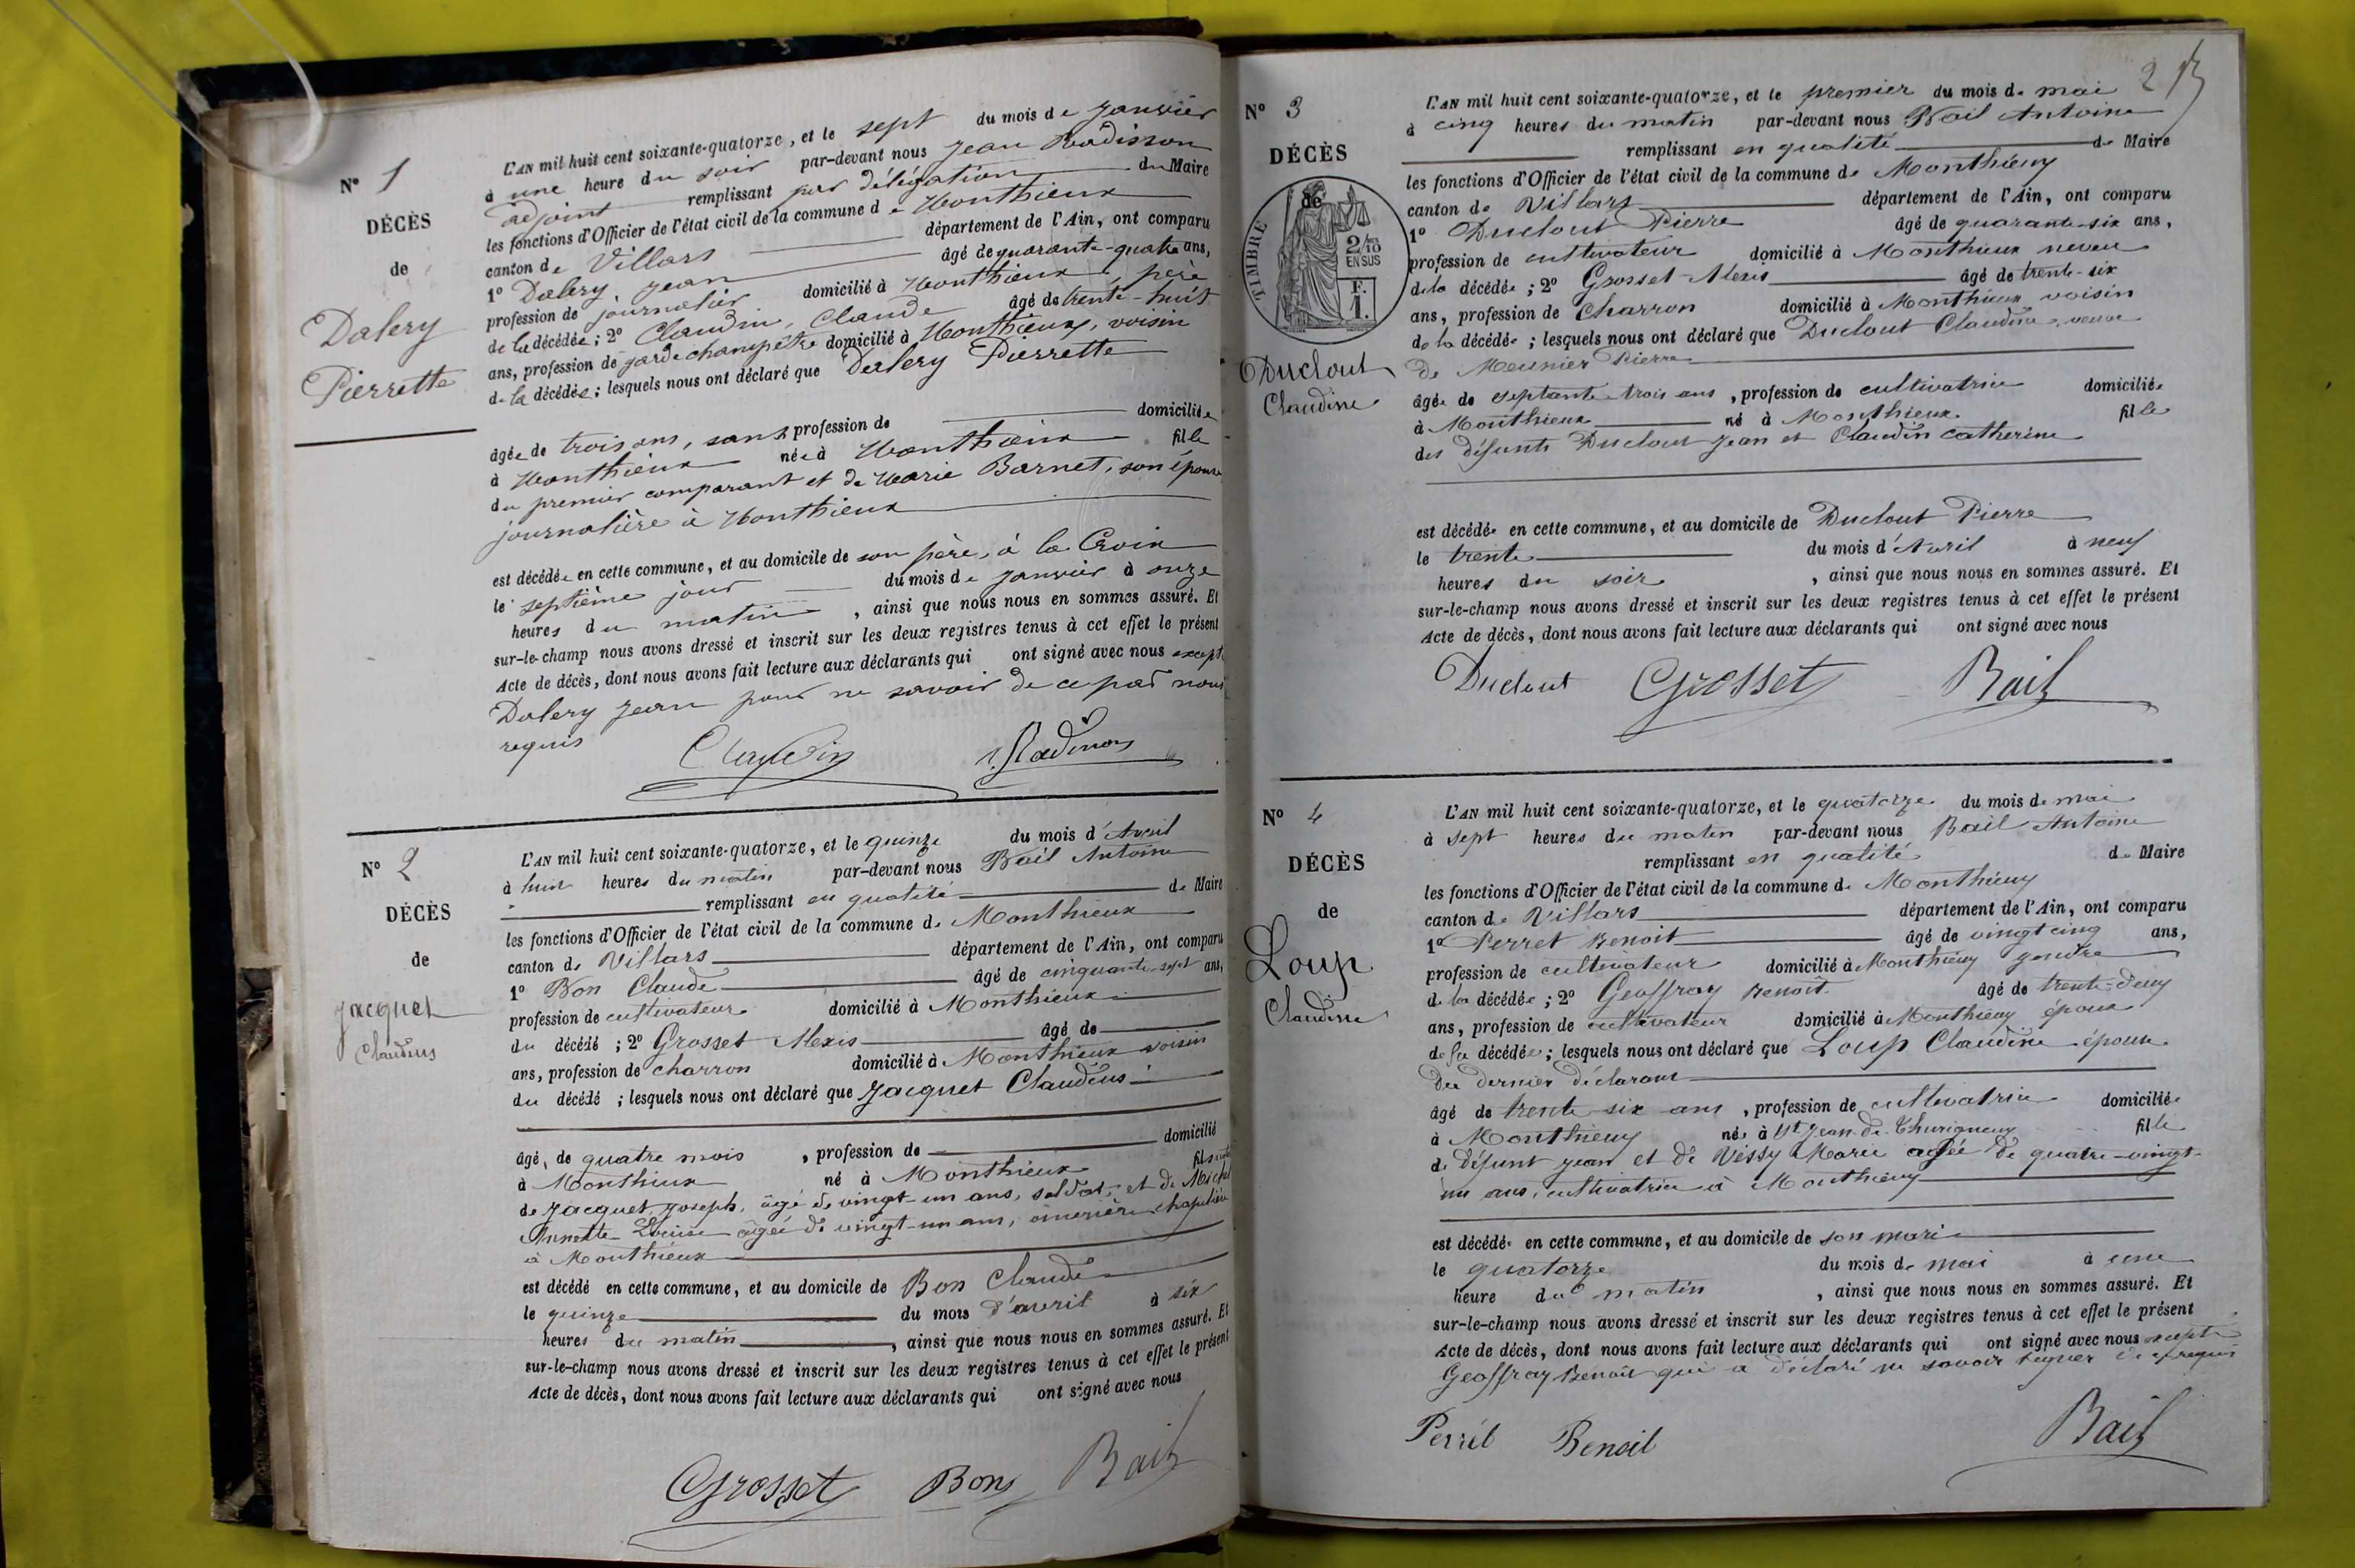 N° 1
DÉCÈS
de
Dalery
Pierrette
L'AN mil huit cent soixante-quatorze, et le sept du mois de Janvier
à une heure du soir par-devant nous Jean Radisson
adjoint remplissant par délégation du Maire
les fonctions d'Officier de l'état civil de la commune de Monthieux
canton de Villars département de l'Ain, ont comparu
1° Dalery Jean âgé de quarante-quatre ans,
profession de journalier domicilié à Monthieux, père
de la décédée ; 2° Claudin, Claude âgé de trente-huit
ans, profession de garde champêtre domicilié à Monthieux, voisin
de la décédée ; lesquels nous ont déclaré que Dalery Pierrette
âgée de trois ans, sans profession de domiciliée
à Monthieux née à Monthieux fille
du premier comparant et de Marie Barnet, son épouse
journalière à Monthieux
est décédée en cette commune, et au domicile de son père, à la Croix
le septième jour du mois de janvier à onze
heures du matin, ainsi que nous nous en sommes assuré. Et
sur-le-champ nous avons dressé et inscrit sur les deux registres tenus à cet effet le présent
Acte de décès, dont nous avons fait lecture aux déclarants qui ont signé avec nous excepté
Dalery Jean pour ne savoir de ce par nous
requis
Claudin J. Radisson
N° 2
DÉCÈS
de
Jacquet
Claudius
L'AN mil huit cent soixante-quatorze, et le quinze du mois d'Avril
à huit heures du matin par-devant nous Bail Antoine
remplissant en qualité de Maire
les fonctions d'Officier de l'état civil de la commune de Monthieux
canton de Villars département de l'Ain, ont comparu
1° Bon Claude âgé de cinquante-sept ans,
profession de cultivateur domicilié à Monthieux
du décédé ; 2° Grosset Alexis âgé de
ans, profession de charron domicilié à Monthieux voisin
du décédé ; lesquels nous ont déclaré que Jacquet Claudius
âgé, de quatre mois, profession de domicilié
à Monthieux né à Monthieux fils
de Jacquet Joseph, âgé de vingt-un ans, soldat, et de Michel
Annette Louise âgée de vingt-un ans, ouvrière chapelière
à Monthieux
est décédé en cette commune, et au domicile de Bon Claude
le quinze du mois d'avril à six
heures du matin, ainsi que nous nous en sommes assuré. Et
sur-le-champ nous avons dressé et inscrit sur les deux registres tenus à cet effet le présent
Acte de décès, dont nous avons fait lecture aux déclarants qui ont signé avec nous
Grosset Bon Bail
2
N° 3
DÉCÈS
de
TIMBRE
2/10 EN SUS
F. 1.
Duclout
Claudine
L'AN mil huit cent soixante-quatorze, et le premier du mois de mai
à cinq heures du matin par-devant nous Bail Antoine
remplissant en qualité de Maire
les fonctions d'Officier de l'état civil de la commune de Monthieux
canton de Villars département de l'Ain, ont comparu
1° Duclout Pierre âgé de quarante-six ans,
profession de cultivateur domicilié à Monthieux neveu
de la décédée ; 2° Grosset Alexis âgé de trente-six
ans, profession de charron domicilié à Monthieux voisin
de la décédée ; lesquels nous ont déclaré que Duclout Claudine, veuve
de Meunier Pierre
âgée de septante trois ans, profession de cultivatrice domiciliée
à Monthieux né à Monthieux fille
des défunts Duclout Jean et Claudin Catherine
est décédée en cette commune, et au domicile de Duclout Pierre
le trente du mois d'Avril à neuf
heures du soir, ainsi que nous nous en sommes assuré. Et
sur-le-champ nous avons dressé et inscrit sur les deux registres tenus à cet effet le présent
Acte de décès, dont nous avons fait lecture aux déclarants qui ont signé avec nous
Duclout Grosset Bail
N° 4
DÉCÈS
de
Loup
Claudine
L'AN mil huit cent soixante-quatorze, et le quatorze du mois de mai
à sept heures du matin par-devant nous Bail Antoine
remplissant en qualité de Maire
les fonctions d'Officier de l'état civil de la commune de Monthieux
canton de Villars département de l'Ain, ont comparu
1° Perret Benoit âgé de vingt cinq ans,
profession de cultivateur domicilié à Monthieux gendre
de la décédée ; 2° Geoffray Benoît âgé de trente-deux
ans, profession de cultivateur domicilié à Monthieux époux
de la décédée ; lesquels nous ont déclaré que Loup Claudine épouse
du dernier déclarant
âgé de trente six ans, profession de cultivatrice domiciliée
à Monthieux née à St Jean-de-Thurigneux fille
de défunt Jean et de Vessy Marie agée de quatre-vingt-
un ans, cultivatrice à Monthieux
est décédée en cette commune, et au domicile de son mari
le quatorze du mois de mai à une
heure du matin, ainsi que nous nous en sommes assuré. Et
sur-le-champ nous avons dressé et inscrit sur les deux registres tenus à cet effet le présent
Acte de décès, dont nous avons fait lecture aux déclarants qui ont signé avec nous excepté
Geoffray Benoît qui a déclaré ne savoir signer de ce requis
Perret Benoit Bail